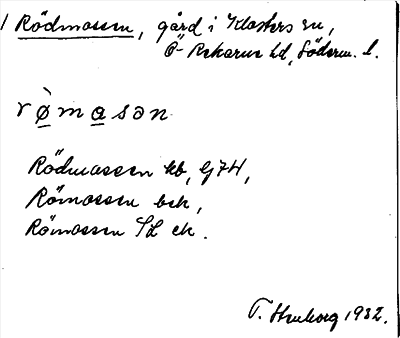 1 Rödmossen, gård i Klosters sn,
Ö Rekarne hd, Söderm. l.
rø̀masən
Rödmossen kb, GJ74,
Römossen bek,
Römossen SL ek.
1932.